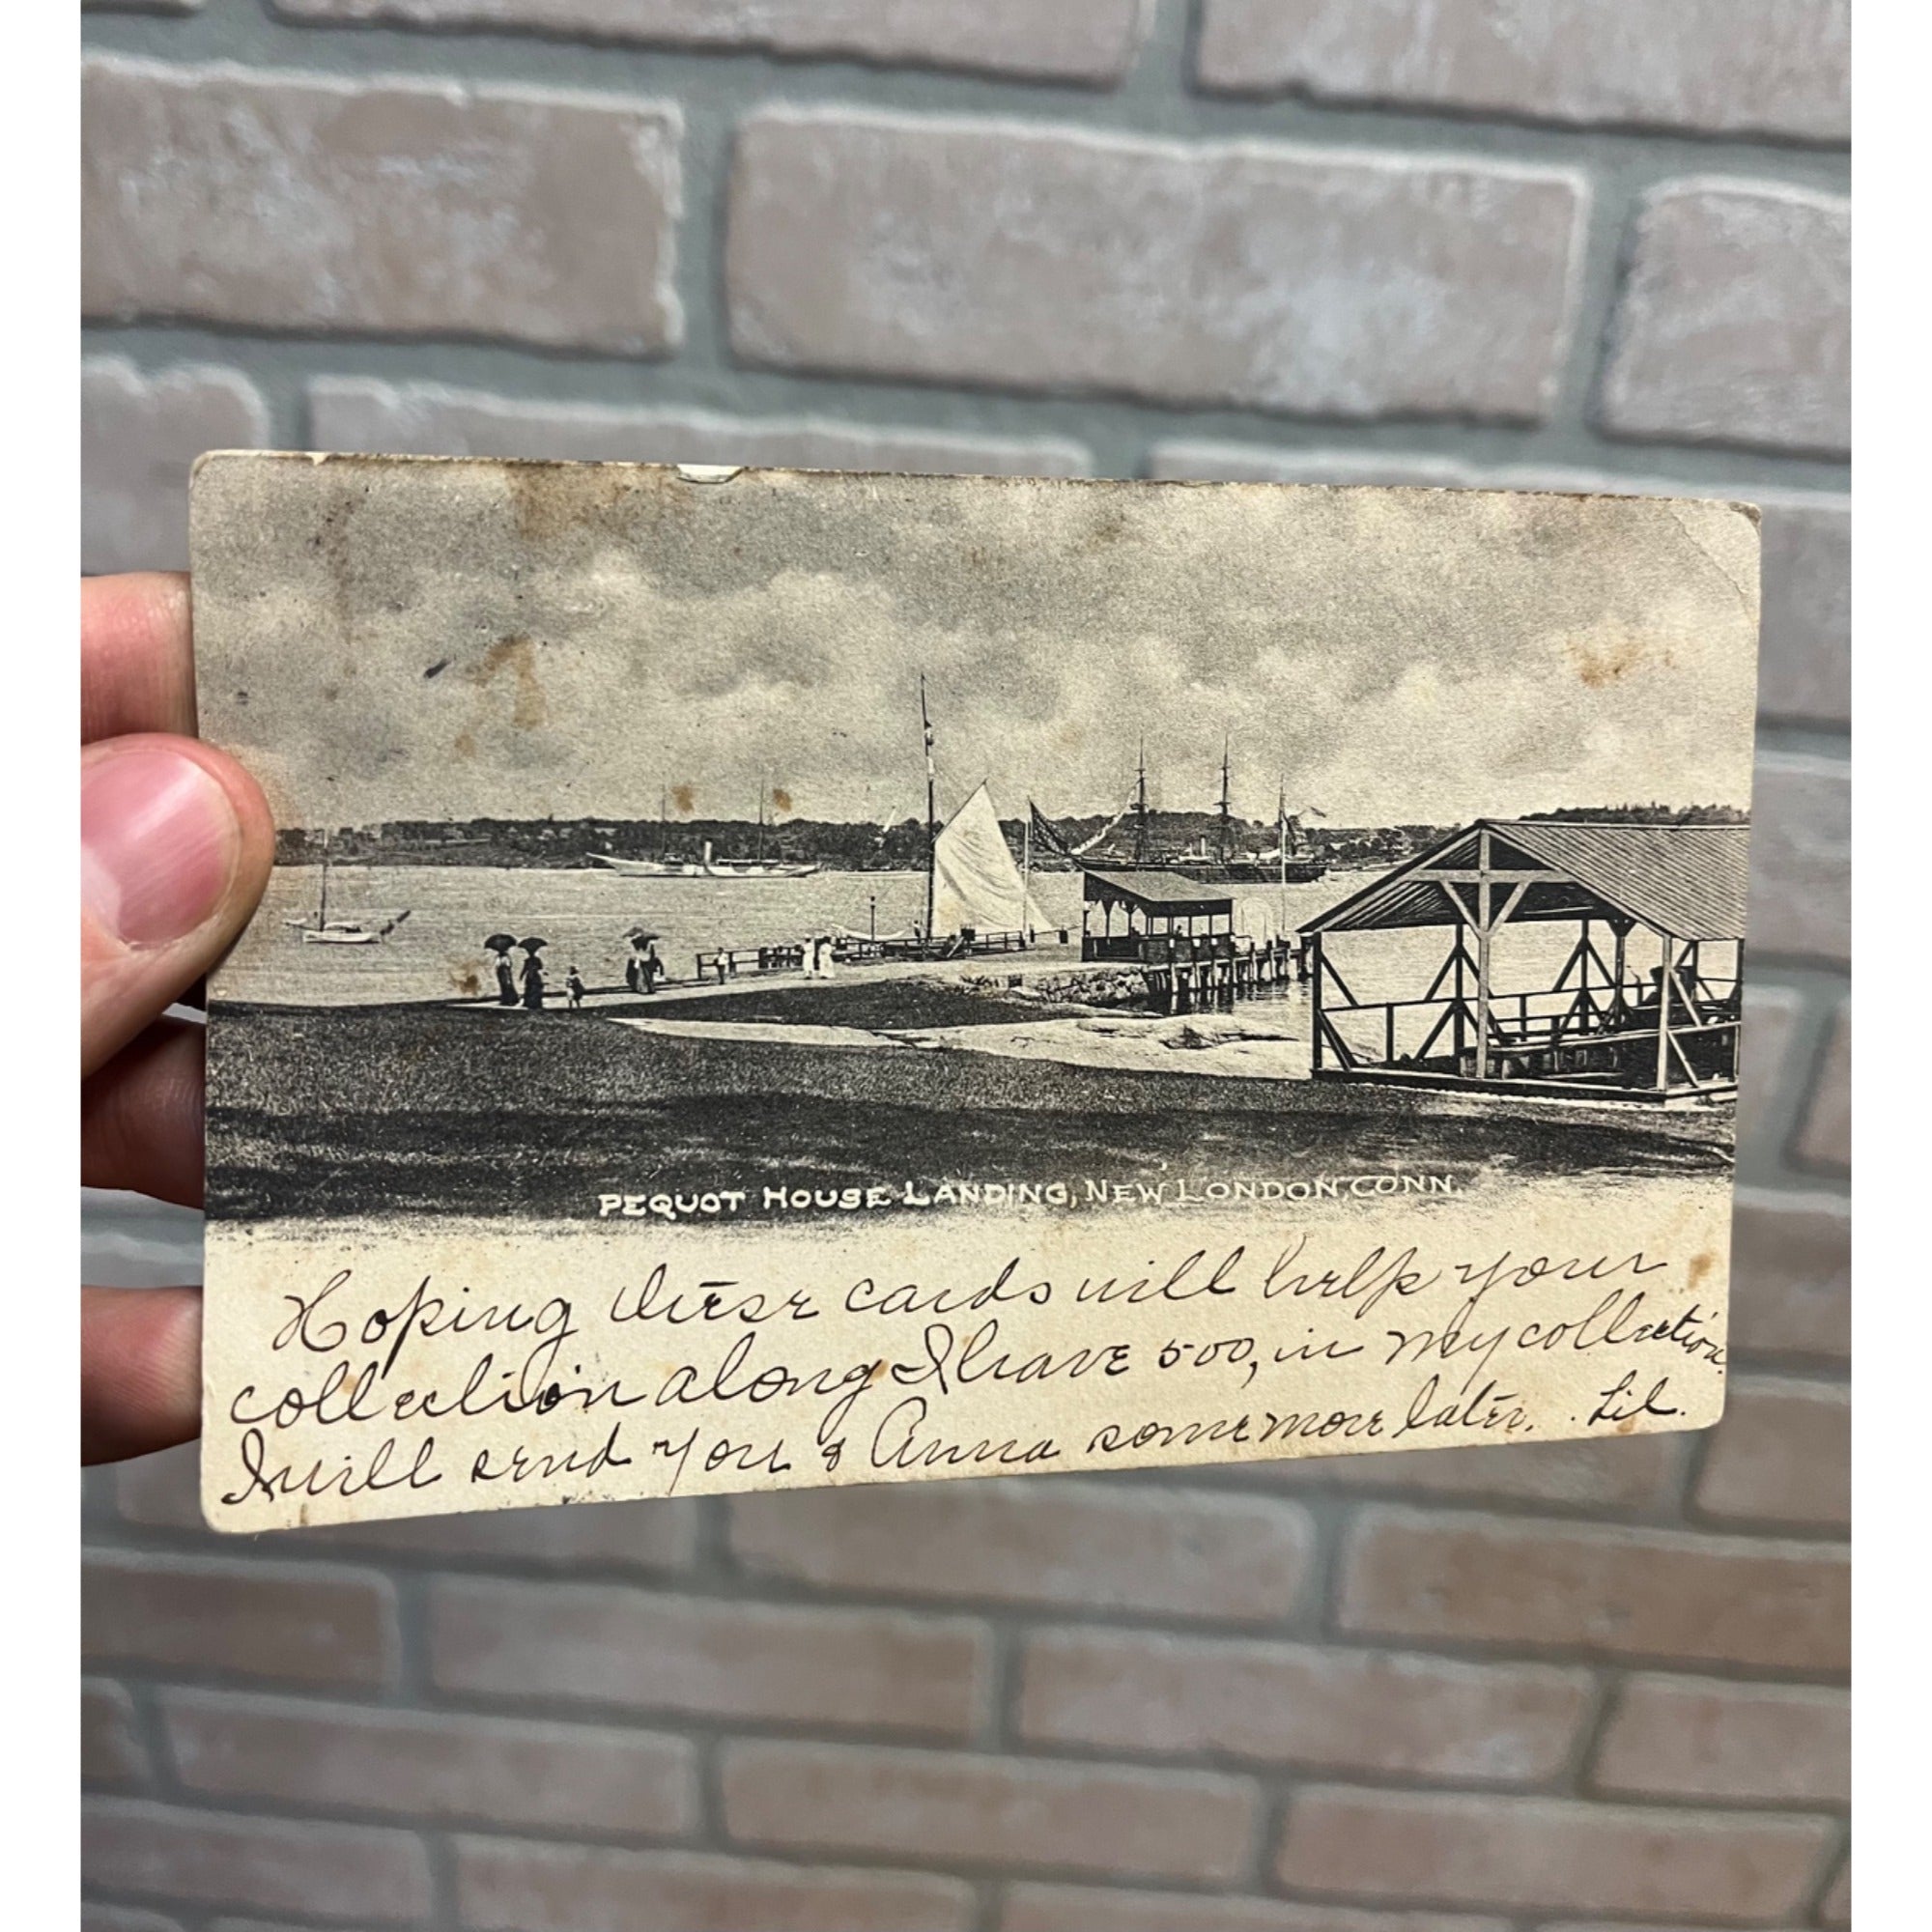 PEQUOT HOUSE LANDING, NEW LONDON, CONN.
Hoping these cards will help your
collection along I have 500, in my collection.
I will send you & Anna some more later. Lil.